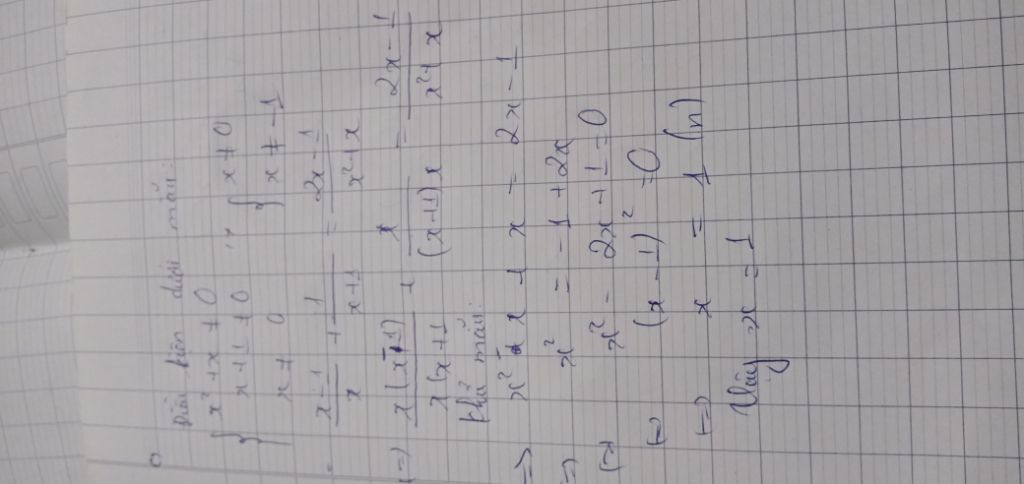 Điều kiện dưới mẫu:
{ x² + x ≠ 0
x + 1 ≠ 0
x ≠ 0
{ x ≠ 0
x ≠ -1
(x-1)/x + 1/(x+1) = (2x-1)/(x²+x)
(=) x(x-1)/x(x+1 + x/(x+1)x = (2x-1)/(x²+x)
khử mẫu:
=> x² - x + x = 2x - 1
=> x² = -1 + 2x
(=) x² - 2x + 1 = 0
(=) (x - 1)² = 0
(=) x = 1 (n)
Vậy x = 1